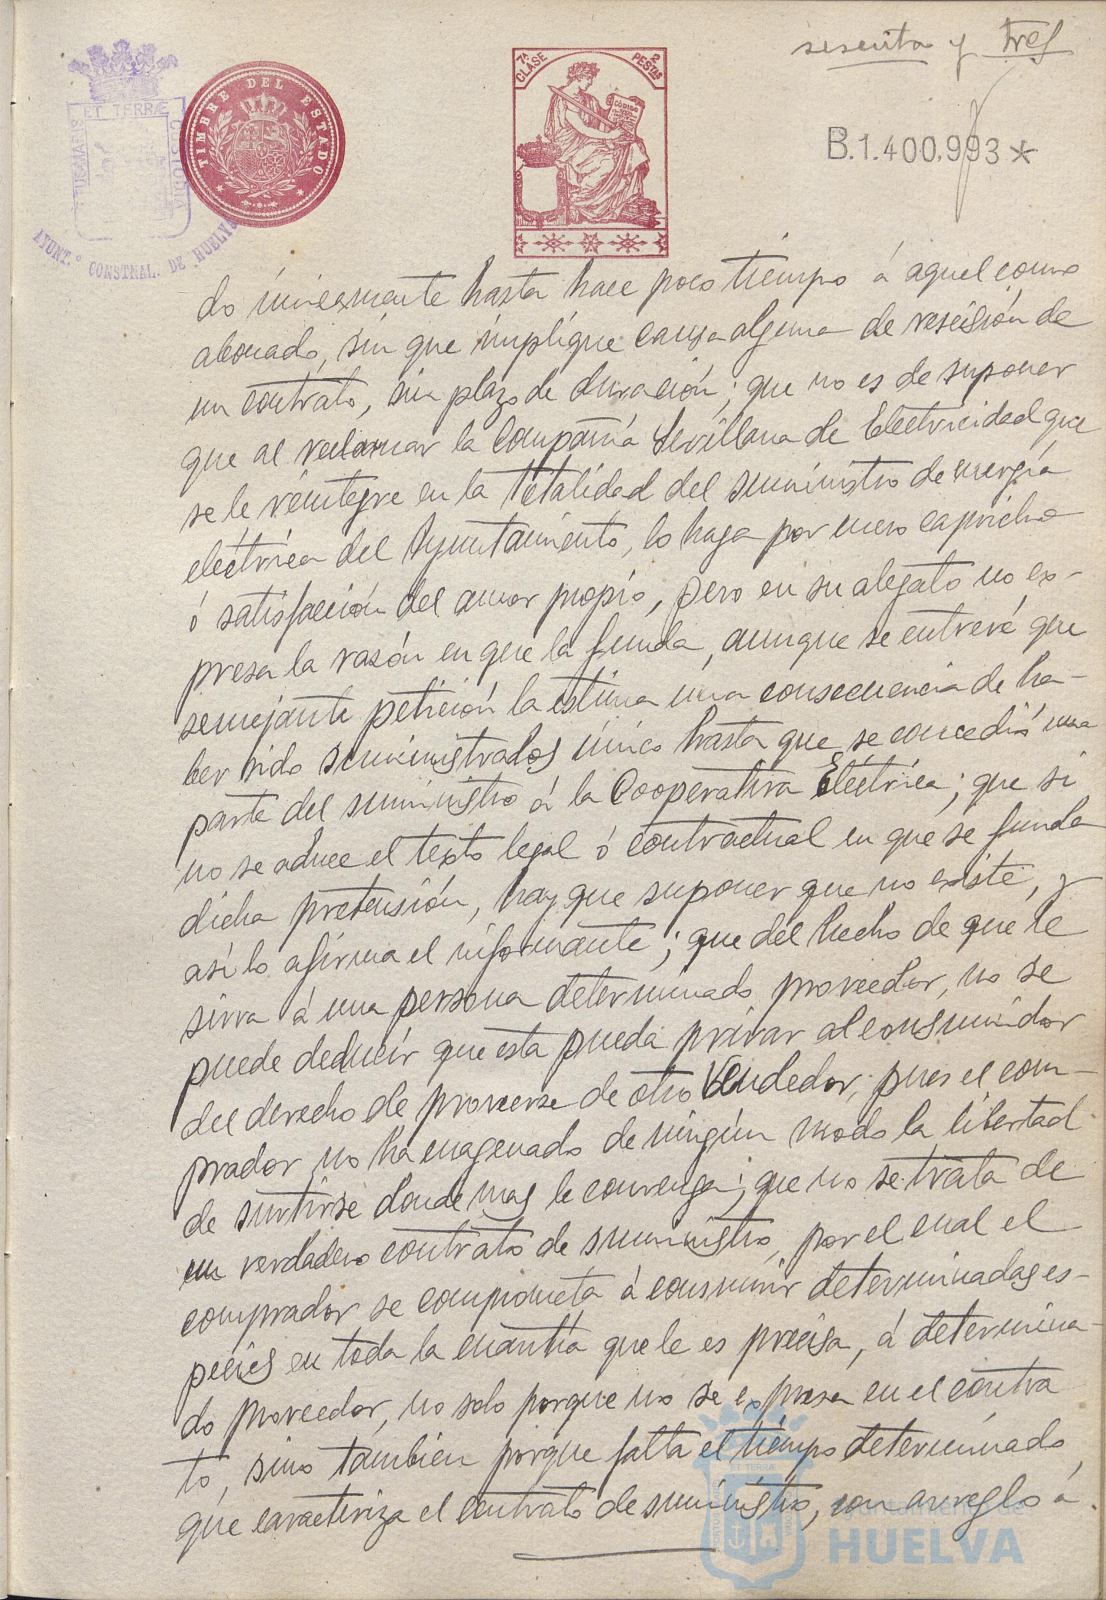 sesenta y tres
ET TERRÆ
CUSTODIA
AYUNT.º CONSTNAL. DE HUELVA
TIMBRE DEL ESTADO
7ª CLASE
2 PESTAS
CÓDIGO
B.1.400.993*
do únicamente hasta hace poco tiempo á aquel como
abonado, sin que implique causa alguna de rescisión de
un contrato, sin plazo de duración; que no es de suponer
que al reclamar la Compañía Sevillana de Electricidad que
se le reintegre en la totalidad del suministro de energía
eléctrica del Ayuntamiento, lo haga por mero capricho
ó satisfacción del amor propio, pero en su alegato no ex-
presa la razón en que la funda, aunque se entrevé que
semejante petición la estima una consecuencia de ha-
ber sido suministrados único hasta que se concedió una
parte del suministro á la Cooperativa Eléctrica; que si
no se aduce el texto legal ó contractual en que se funda
dicha pretensión, hay que suponer que no existe, y
así lo afirma el informante; que del hecho de que le
sirva á una persona determinado proveedor, no se
puede deducir que esta pueda privar al consumidor
del derecho de proveerse de otro vendedor, pues el com-
prador no ha enagenado de ningún modo la libertad
de surtirse donde mas le convenga; que no se trata de
un verdadero contrato de suministro, por el cual el
comprador se comprometa á consumir determinadas es-
pecies en toda la cuantía que le es precisa, á determina-
do proveedor, no solo porque no se expresa en el contra
to, sino tambien porque falta el tiempo determinado,
que caracteriza el contrato de suministro, con arreglo á
ET TERRÆ
Ayuntamiento de
HUELVA